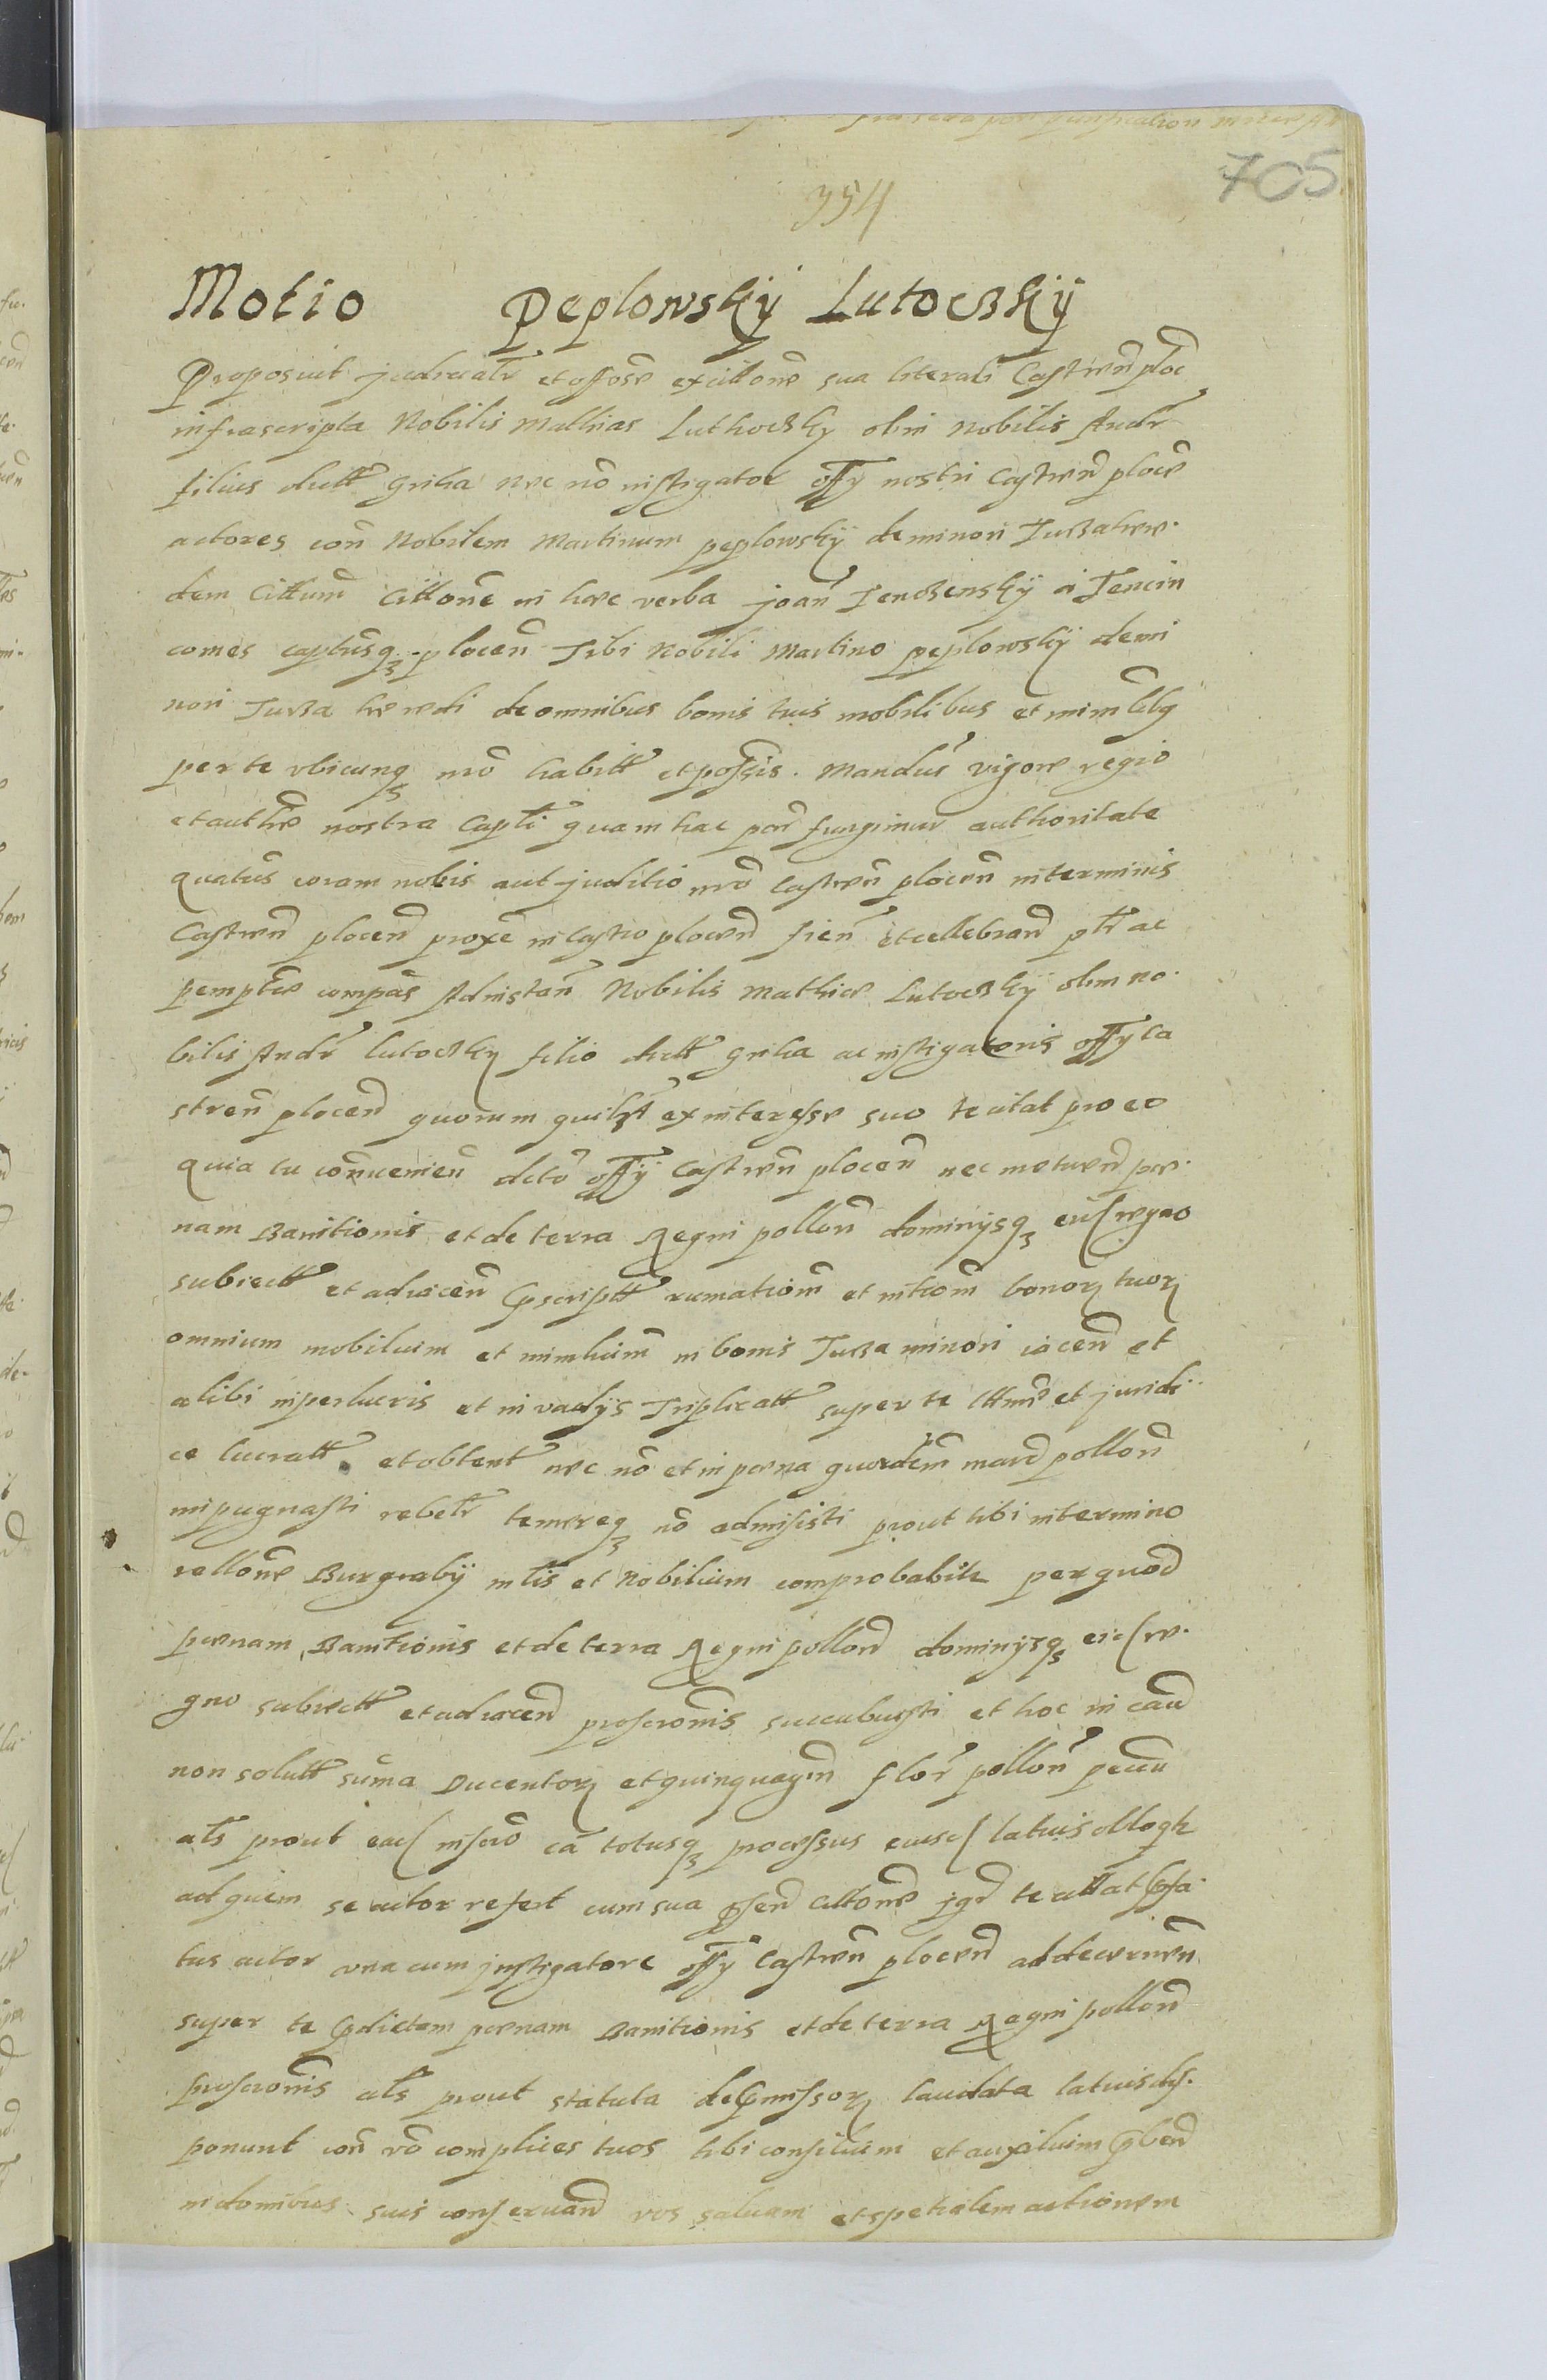 705
354
Motio Peplowskÿ LutoβSkÿ
Proposuit judicialr et offose ex cittone sua literali Castren ploc
infrascripta Nobilis Mathias LuthoβSky olim Nobilis Andr
filius dictt Gricha nec no instigator offy nostri Castren ploce
actores con Nobilem Martinum peplowskÿ de minori Turβa here.
dem Cittum Cittone in haec verba joan Tenczenskÿ a Tencin
comes captusq plocen Tibi Nobili Martino peplowskÿ de mi
nori Turβa heredi de omnibus bonis tuis mobilibus et immlibq
per te vbicunq mo habitt et possis. Mandus vigore regio
et authe nostra Capti qua in hac par fungimur authoritate
quatus coram nobis aut juditio nro Castren plocen in terminis
Castren plocen proxe in Castro plocen fien et cellebrand ptr ac
pempte compas Ad instan Nobilis Mathiae Lutoβky olim no.
bilis Andr Lutoβky filio dictt Gricha ac instigatoris offy Ca
stren plocen quorum quilzt ex interesse suo te citat pro eo
quia tu convenien dcto offÿ Castren plocen nec metuen poe.
nam Banitionis et de terra Regni pollon dominysq eid regno
subiectt et adiacen pscriptt rumation et nition bonor tuor
omnium mobiluim et immlium in bonis Turβa minori iacen et
alibi in perlucris et in vadÿs Triplicatt super te lttme et juridi
ce lucratt et obtent nec no et in poena quordcim marc pollon
impugnasti rebelr temereq no admisisti prout tibi in termino
rellone Burgrabÿ mlis et Nobilium comprobabitr per quod
poenam Banitionis et de terra Regni pollon dominÿsq eid re.
gno subiectt et adiacen proscronis succubuisti et hoc in cau
non solutt suma Ducentor et quinquagin flor pollon pecuu
als prout ead inscro ca totusq processus eiusd latius ellogtr
ad quem se actor refert cum sua psen cittone jgr te cittat psa
tus actor vna cum jnstigatore offÿ Castren plocen ad decernen
super te pdictam poenam Banitionis et de terra Regni pollon
proscronis als prout statuta de pmissor laudata latius dis.
ponunt con vo complices tuos tibi consilium et auxiluim pben
in domibus suis conseruand vos saluam et spetialem actionem